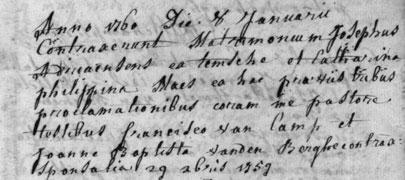 Anno 1760 Die 8 Januarii
Contraxerunt Matrimonium Josephus
Adriaensens ex temsche et Catharina
philippina Maes ex hac praeviis tribus
proclamationibus coram me pastore
testibus francisco van Camp et
Joanne Baptista vanden Berghe contraa-
sponsalia 29 xbris 1759